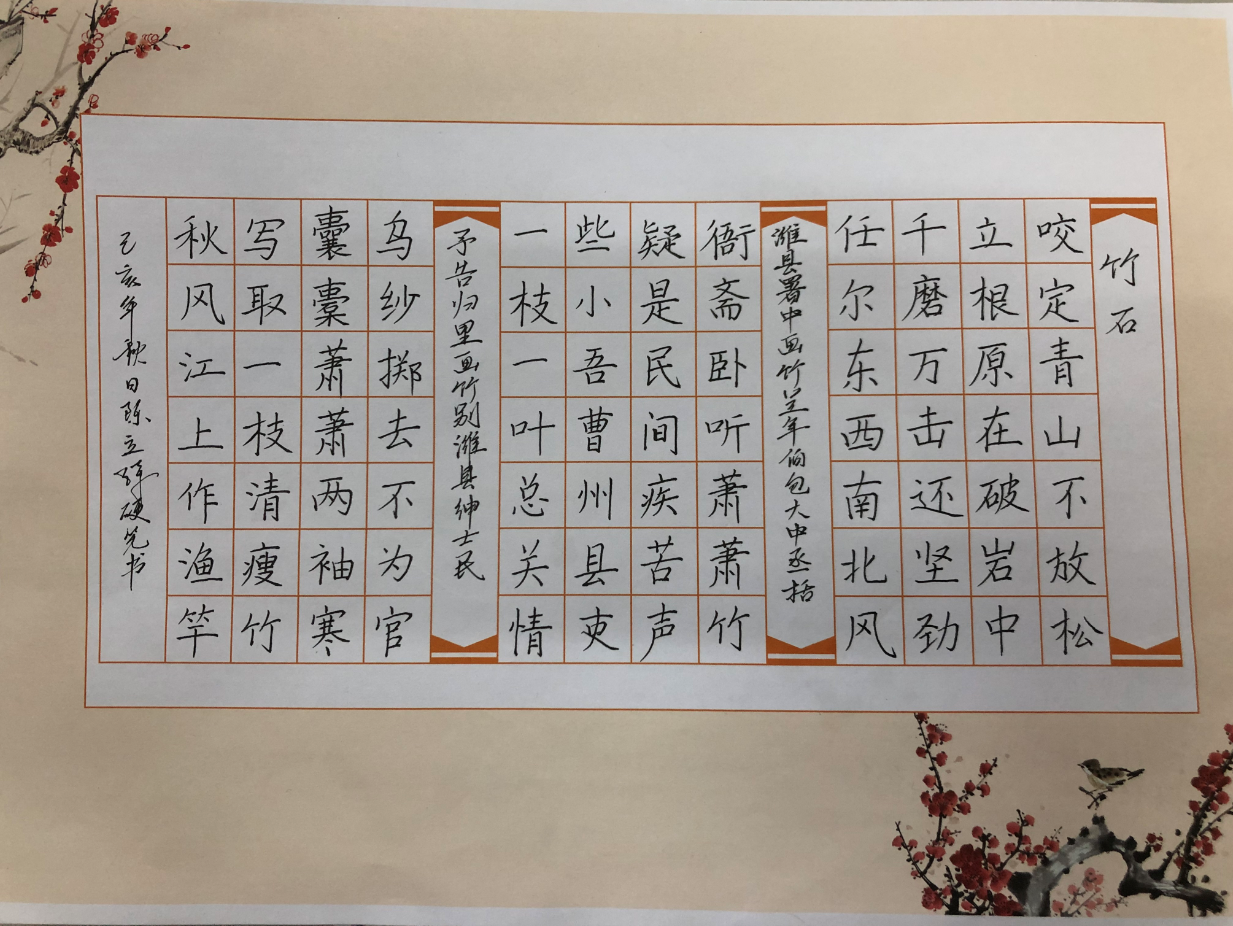 竹石
咬定青山不放松
立根原在破岩中
千磨万击还坚劲
任尔东西南北风
潍县署中画竹呈年伯包大中丞括
衙斋卧听萧萧竹
疑是民间疾苦声
些小吾曹州县吏
一枝一叶总关情
予告归里画竹别潍县绅士民
乌纱掷去不为官
囊橐萧萧两袖寒
写取一枝清瘦竹
秋风江上作渔竿
己亥年秋日陈立硬笔书